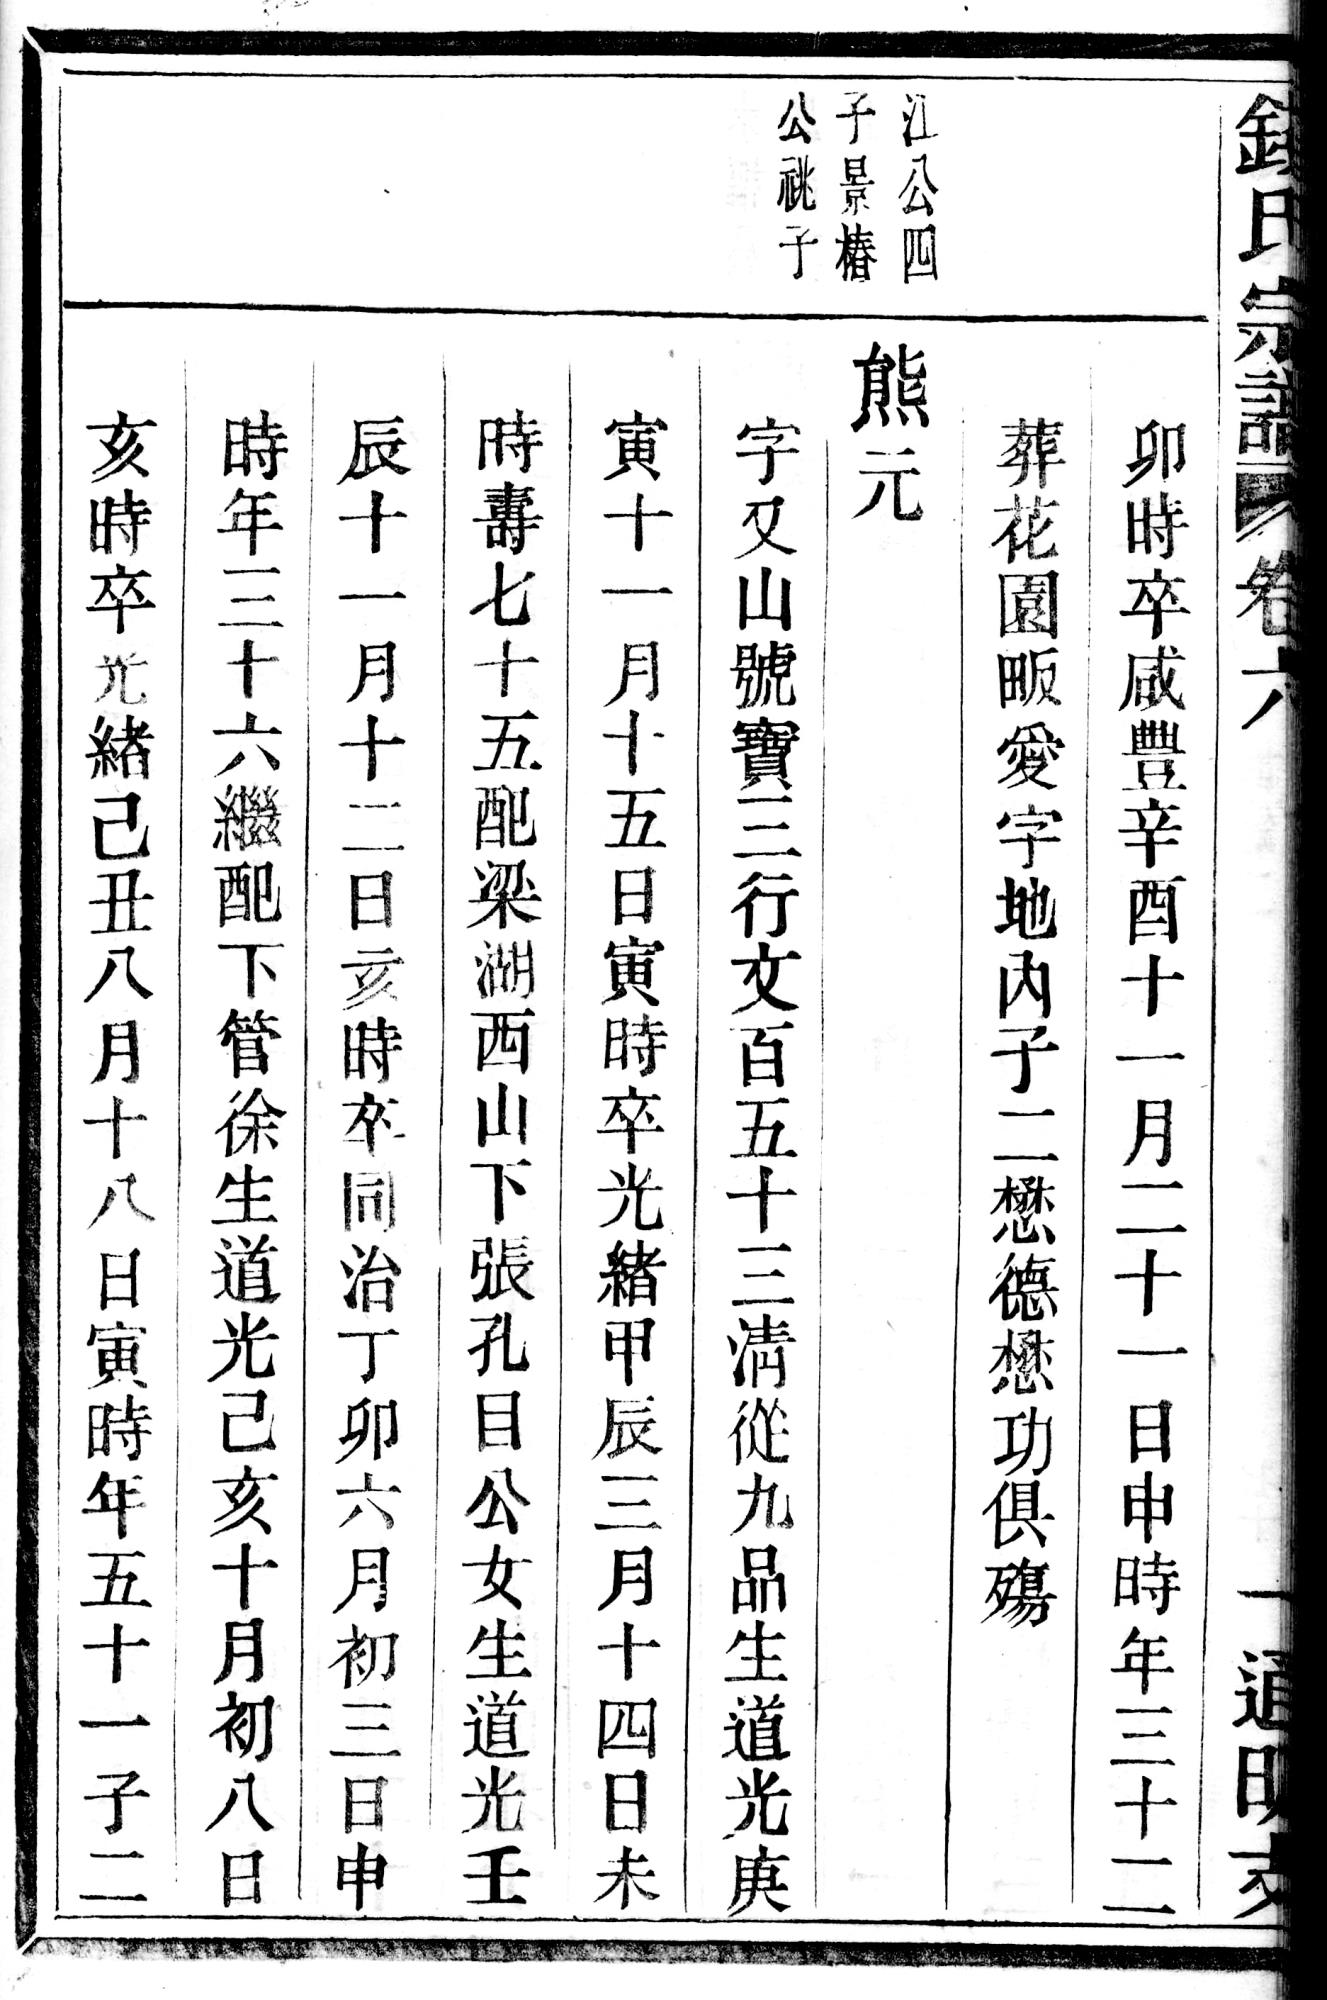 氏宗譜 卷六 一 通明支
卯時卒咸豐辛酉十一月二十一日申時年三十二
葬花園畈愛字地內子二懋德懋功俱殤
江公四
子景椿
公祧子
熊元
字又山號寶三行文百五十三淸從九品生道光庚
寅十一月十五日寅時卒光緒甲辰三月十四日未
時壽七十五配梁湖西山下張孔目公女生道光壬
辰十一月十二日亥時卒同治丁卯六月初三日申
時年三十六繼配下管徐生道光己亥十月初八日
亥時卒光緒己丑八月十八日寅時年五十一子二